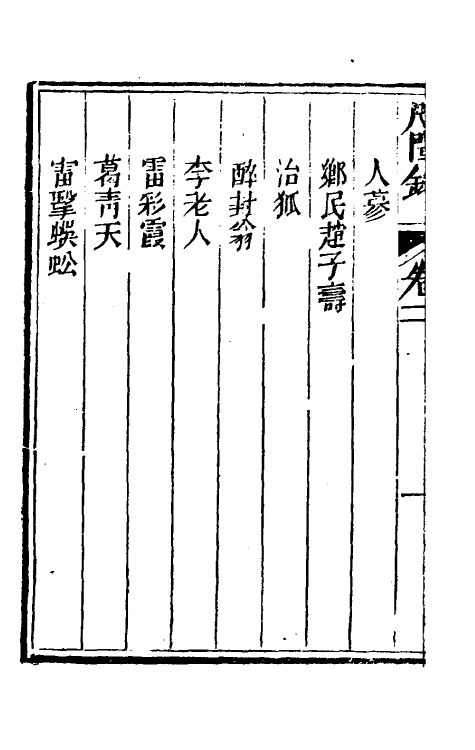 人蔘
鄉民趙子壽
治狐
醉封翁
李老人
雷彩霞
葛青天
雷擊蜈蚣
卷二
一